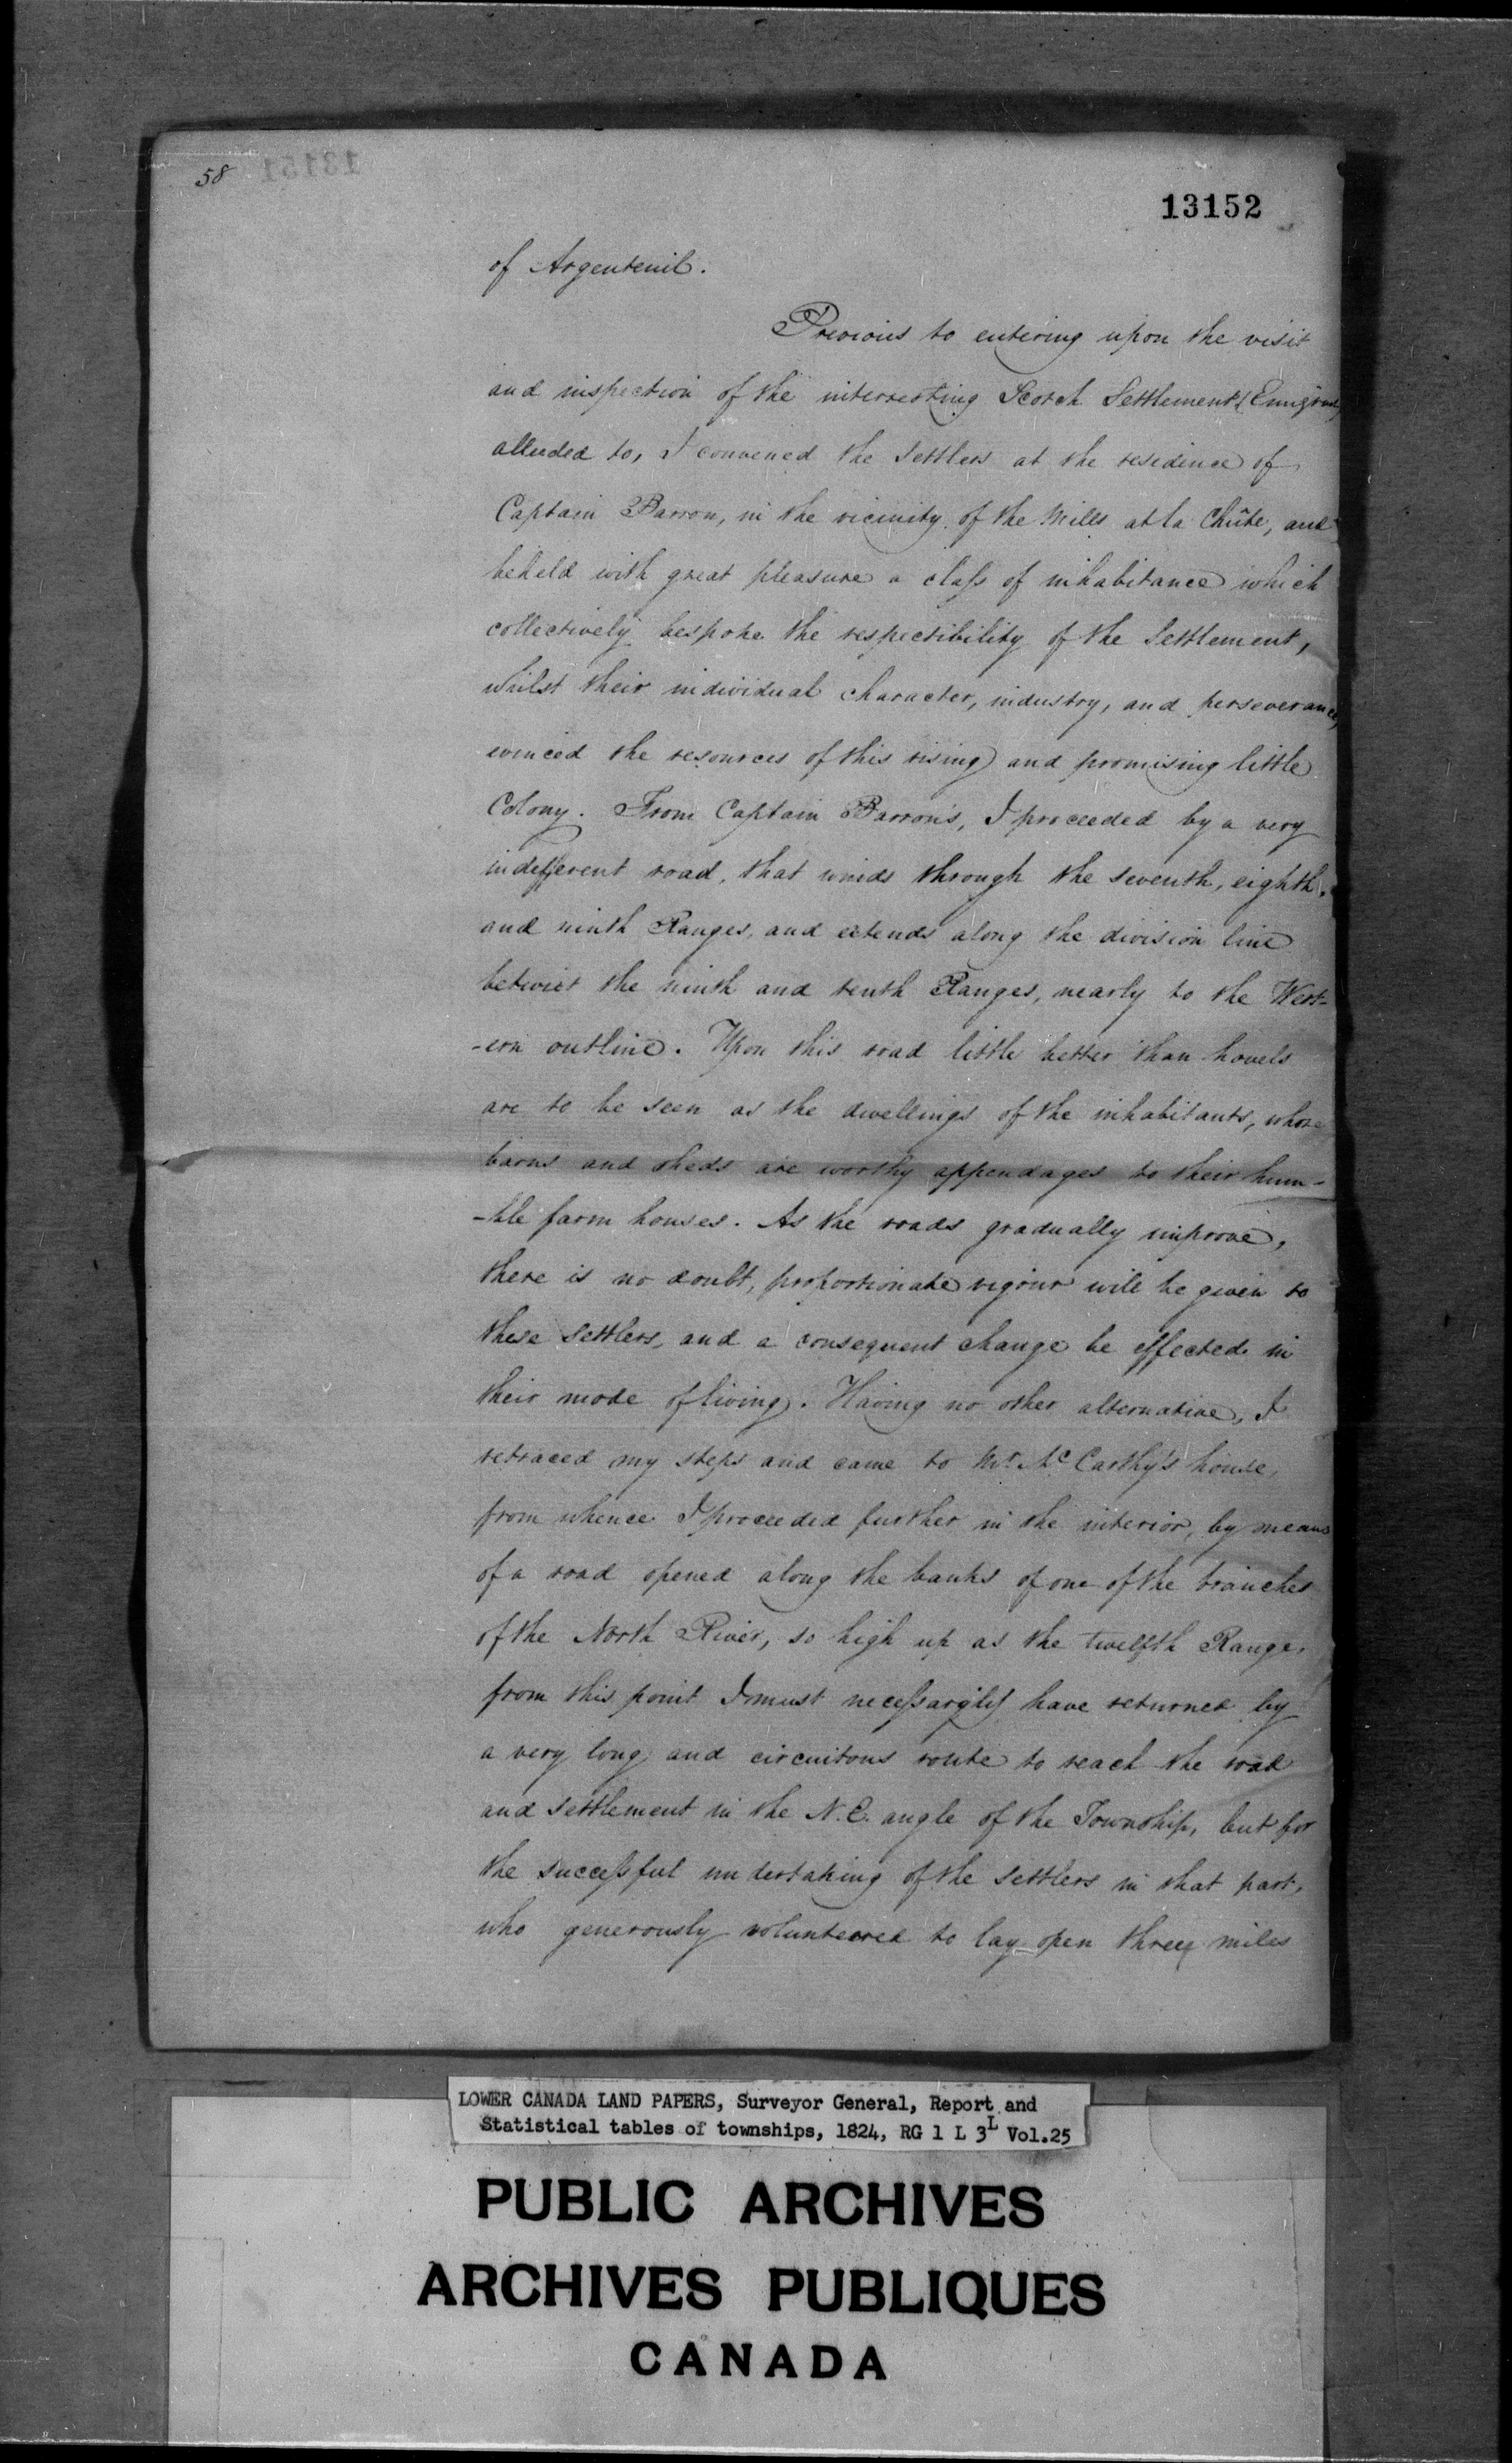 58
13152
of Argenteuil.
Previous to entering upon the visit
and inspection of the interresting Scotch Settlement
alluded to, I convened the settlers at the residence of
Captain Barron, in the vicinity of the Mills at la Chûte, and
beheld with great pleasure a class of inhabitance which
collectively bespoke the respectibility of the Settlement,
whilst their individual character, industry, and perseverance,
evinced the resources of this rising and promising little
Colony. From Captain Barron's, I proceeded by a very
indefferent road, that winds through the seventh, eighth,
and ninth Ranges, and extends along the division line
betwixt the ninth and tenth Ranges, nearly to the West-
-ern outline. Upon this road little better than hovels
are to be seen as the dwellings of the inhabitants, whose
barns and sheds are worthy appendages to their hum-
-ble farm houses. As the roads gradually improve,
there is no doubt, proportionate vigour will be given to
these settlers, and a consequent change be effected in
their mode of living. Having no other alternative, I
retraced my steps and came to Mr. McCarthy's house,
from whence I proceeded further in the interior, by means
of a road opened along the banks of one of the branches
of the North River, so high up as the twelfth Range,
from this point I must necessarily have returned by
a very long and circuitous route to reach the road
and settlement in the N.E. angle of the Township, but for
the successful undertaking of the settlers in that part,
who generously voluntered to lay open three miles
LOWER CANADA LAND PAPERS, Surveyor General, Report and
Statistical tables of townships, 1824, RG 1 L 3L Vol.25
PUBLIC ARCHIVES
ARCHIVES PUBLIQUES
CANADA